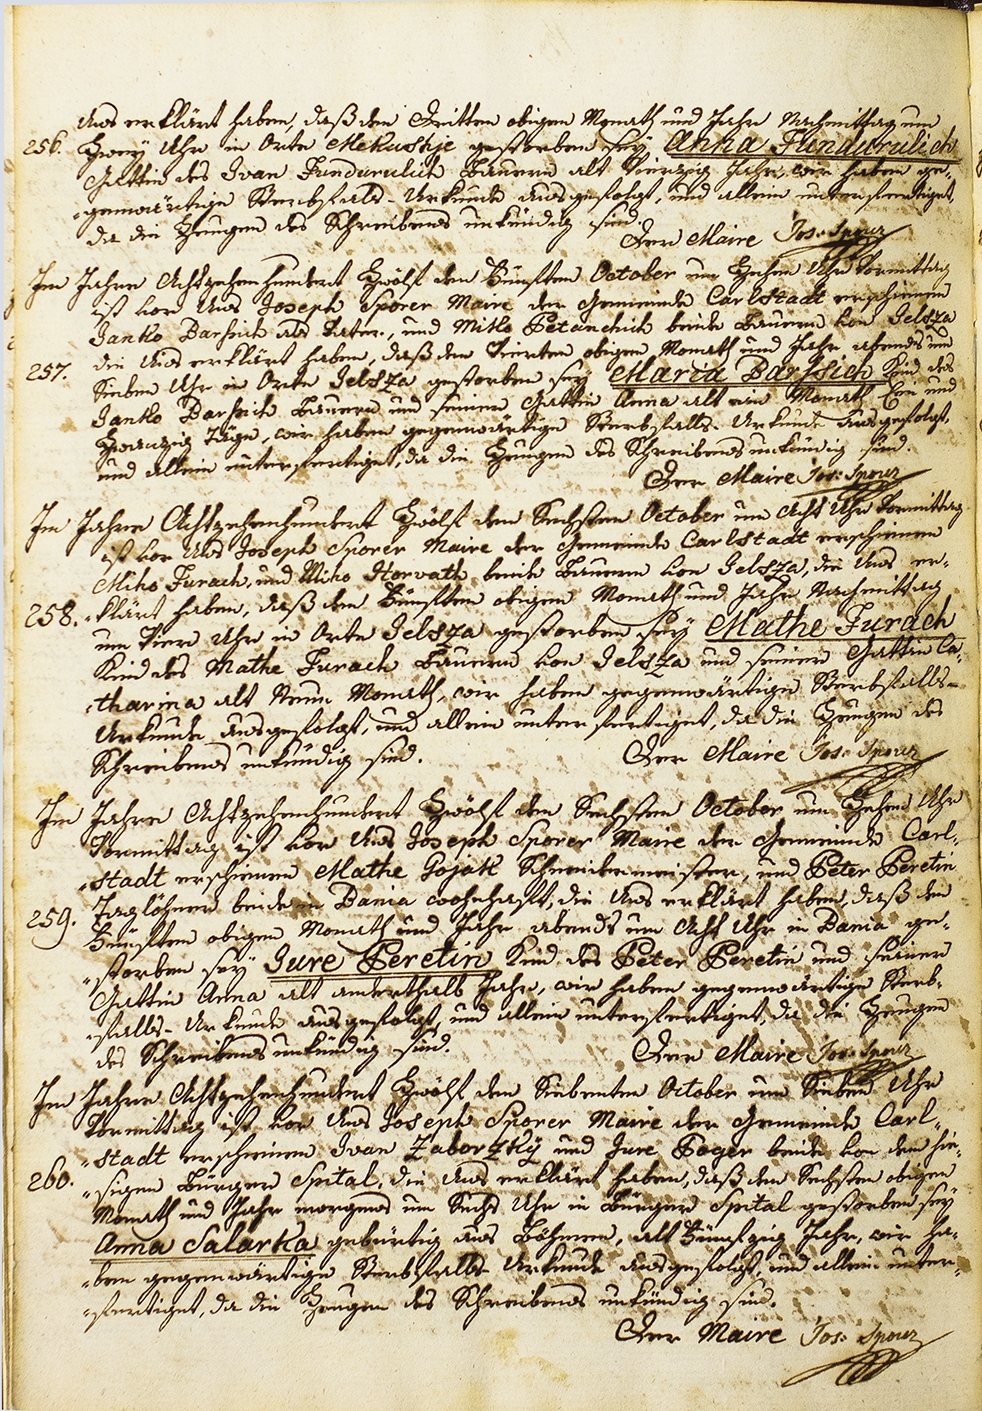 Uns erklärt haben, daß den Dritten obigen Monath und Jahr Nachmittag um
256. Zwey Uhr in Orte Mekushje gestorben sey Anna Fundurulich
Gattin des Ivan Fundurulich Bauern alt Vierzig Jahr, wir haben ge-
-genwärtige Sterbfalls-Urkunde ausgefolgt, und allein unterfertiget,
da die Zeugen des Schreibens unkündig sind.
Der Maire Jos: Sporer
Im Jahre Achtzehenhundert Zwölf den Fünften October um Zehen Uhr Vormittag
ist vor Uns Joseph Sporer Maire der Gemeinde Carlstadt erschienen
Janko Barsich als Vater, und Mitko Petanchich beide Bauern von Jelsza
die Uns erklärt haben, daß den Vierten obigen Monath und Jahr abends um
257. Sieben Uhr in Orte Jelsza gestorben sey Maria Barssich Kind des
Janko Barsich Bauern und seiner Gattin Anna alt ein Monath Ein und
Zwanzig Täge, wir haben gegenwärtige Sterbfalls-Urkunde ausgefolgt,
und allein unterfertiget, da die Zeugen des Schreibens unkündig sind.
Der Maire Jos: Sporer
Im Jahre Achtzehenhundert Zwölf den Sechsten October um Acht Uhr Vormittag
ist vor Uns Joseph Sporer Maire der Gemeinde Carlstadt erschienen
Miko Furach, und Miko Horvath beide Bauern von Jelsza, die Uns er-
258. -klärt haben, daß den Fünften obigen Monath und Jahr Nachmittag
um Vier Uhr in Orte Jelsza gestorben sey Mathe Furach
Kind des Mathe Furach Bauern von Jelsza und seiner Gattin Ca-
-tharina alt Neun Monath, wir haben gegenwärtige Sterbfalls-
Urkunde ausgefolgt, und allein unterfertiget, da die Zeugen des
Schreibens unkündig sind. Der Maire Jos: Sporer
Im Jahre Achtzehenhundert Zwölf den Sechsten October um Zehen Uhr
Vormittag ist vor Uns Joseph Sporer Maire der Gemeinde Carl-
-stadt erschienen Mathe Gojak Schneidermeister, und Peter Peretin
259. Taglöhner beide in Bania wohnhaft, die Uns erklärt haben, daß den
Fünften obigen Monath und Jahr abends um Acht Uhr in Bania ge-
-storben sey Jure Peretin Kind des Peter Peretin und seiner
Gattin Anna alt anderthalb Jahr, wir haben gegenwärtige Sterb-
-falls-Urkunde ausgefolgt, und allein unterfertiget, da die Zeugen
des Schreibens unkündig sind. Der Maire Jos: Sporer
Im Jahre Achtzehenhundert Zwölf den Siebenten October um Sieben Uhr
Vormittag ist vor Uns Joseph Sporer Maire der Gemeinde Carl-
-stadt erschienen Ivan Zaborzky und Jure Poger beide von dem hie-
260. -sigen Bürger Spital, die Uns erklärt haben, daß den Sechsten obigen
Monath und Jahr morgens um Sechs Uhr in Bürger Spital gestorben sey
Anna Salarka gebürtig aus Böhmen, alt Fünfzig Jahr, wir ha-
-ben gegenwärtige Sterbfalls Urkunde ausgefolgt, und allein unter-
-fertiget, da die Zeugen des Schreibens unkündig sind.
Der Maire Jos: Sporer